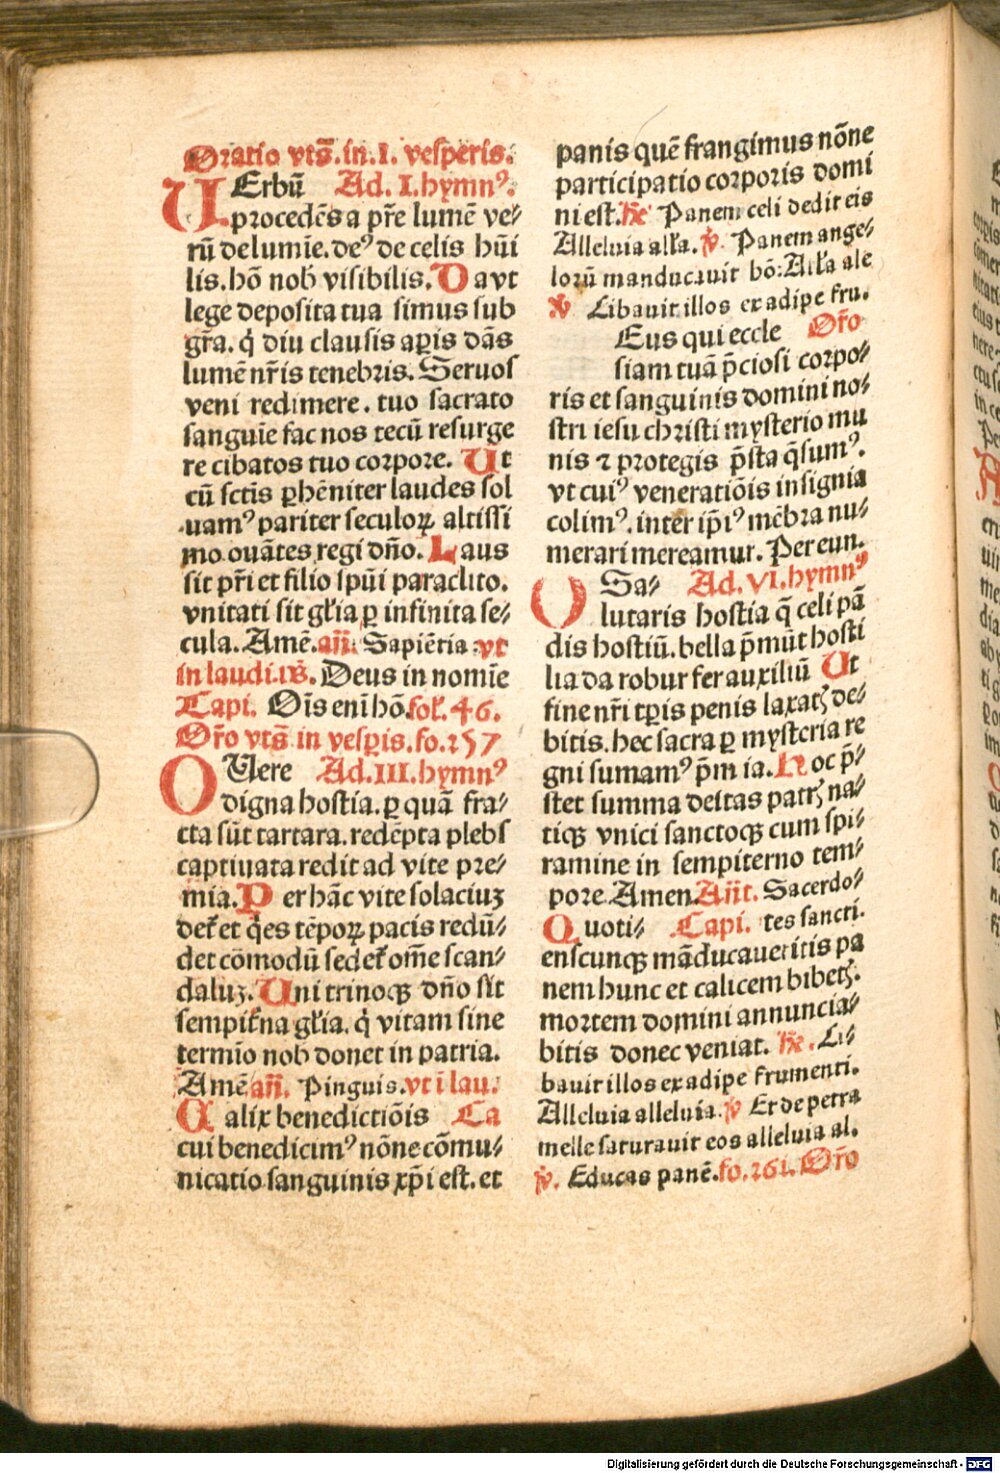 Oratio vts̄.in.I. vesperis.
UErbū Ad. I.hymnꝰ.
procedēs a pr̄e lumē ve⸗
rū de lumīe.deꝰ de celis hūi
lis.hō nob̄ visibilis.Da vt
lege deposita tua simus sub
gr̄a.q̇ diu clausis aꝑis dās
lumē nr̄is tenebris.Seruos
veni redimere.tuo sacrato
sanguīe fac nos tecū resurge
re cibatos tuo corpore. Ut
cū sctīs ꝑhēniter laudes sol
uamꝰ pariter seculoꝝ altissi
mo.ouātes regi dn̄o.Laus
sit pr̄i et filio spūi paraclito.
vnitati sit gl̄ia ꝑ infinita se⸗
cula.Amē.an̄. Sapiētia vt
in laudi.ps̄.Deus in nomīe
Capi. Oīs enī hō.fol̄.46.
Or̄o vts̄ in vesꝑis.fo.257
O Uere Ad.III.hymnꝰ
digna hostia.ꝑ quā fra⸗
cta sūt tartara.redēpta plebs
captiuata redit ad vite pre⸗
mia.Per hāc vite solaciuꝫ
det̄ et q̇es tēpoꝝ pacis redū⸗
det cōmodū sedet̄ om̄e scan⸗
daluꝫ.Uni trinoqꝫ dn̄o sit
sempit̄na gl̄ia.q̇ vitam sine
termīo nob̄ donet in patria.
Amē an̄. Pinguis.vt ī lau.
Calix benedictiōis Ca
cui benedicimꝰ nōne cōmu⸗
nicatio sanguinis xp̄i est.et
panis quē frangimus nōne
participatio corporis domi
ni est.℟ Panem celi dedit eis
Alleluia all̄a.℣. Panem ange⸗
lorū manducauit hō:All̄a ale
℣ Cibauit illos ex adipe fru.
Eus qui eccle Or̄o
siam tuā p̄ciosi corpo⸗
ris et sanguinis domini no⸗
stri iesu christi mysterio mu
nis ⁊ protegis p̄sta q̄sumꝰ.
vt cuiꝰ veneratiōis insignia
colimꝰ.inter ip̄iꝰ mēbra nu⸗
merari mereamur. Per eun.
O Sa⸗ Ad.VI.hymnꝰ
lutaris hostia q̄ celi pā
dis hostiū.bella p̄mūt hosti
lia da robur fer auxiliū Ut
fine nr̄i tꝑis penis laxatꝫ de⸗
bitis.hec sacra ꝑ mysteria re
gni sumamꝰ p̄mia.Hoc p̄⸗
stet summa deitas patrꝫ na⸗
tiqꝫ vnici sanctoqꝫ cum spi⸗
ramine in sempiterno tem⸗
pore.Amen.Ant̄. Sacerdo⸗
Quoti⸗ Capi. tes sancti.
enscunqꝫ māducaueritis pa
nem hunc et calicem bibetꝫ.
mortem domini annuncia⸗
bitis donec veniat. ℟.Ci⸗
bauit illos ex adipe frumenti.
Alleluia alleluia.℣ Et de petra
melle saturauit eos alleluia al.
℣. Educas panē.fo.261.Or̄o
Digitalisierung gefördert durch die Deutsche Forschungsgemeinschaft - DFG